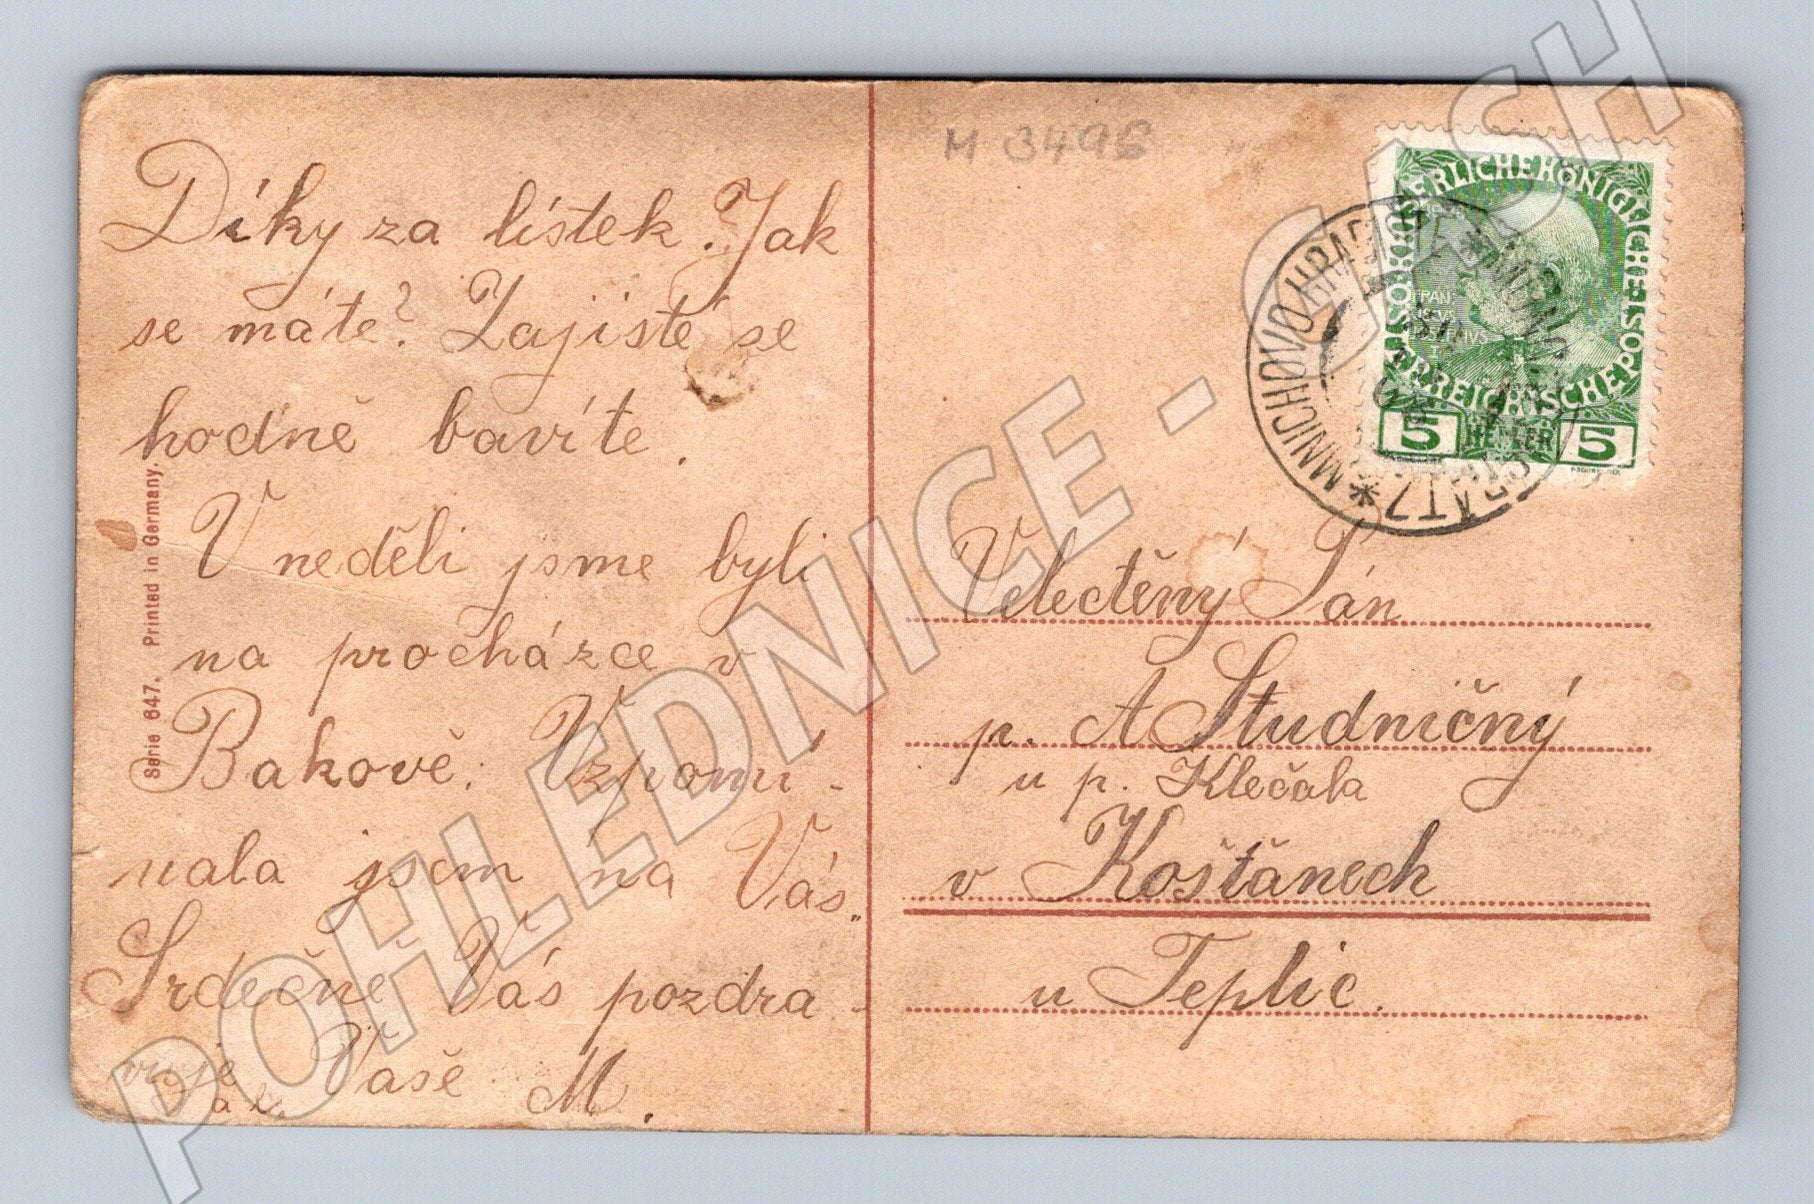 Díky za lístek. Jak
se máte? Zajisté se
hodně bavíte.
V neděli jsme byli
na procházce v
Bakově. Vzpomí-
nala jsem na Vás.
Srdečně Vás pozdra-
vuje Vaše M.
Serie 647. Printed in Germany.
M 3496
KAISERLICHE KÖNIGLICHE
ÖSTERREICHISCHE POST
5 HELLER 5
MNICHOVO HRAD
Velectěný Pán
p. A Studničný
u p. Klečala
v Košťanech
u Teplic.
POHLEDNICE - CASH